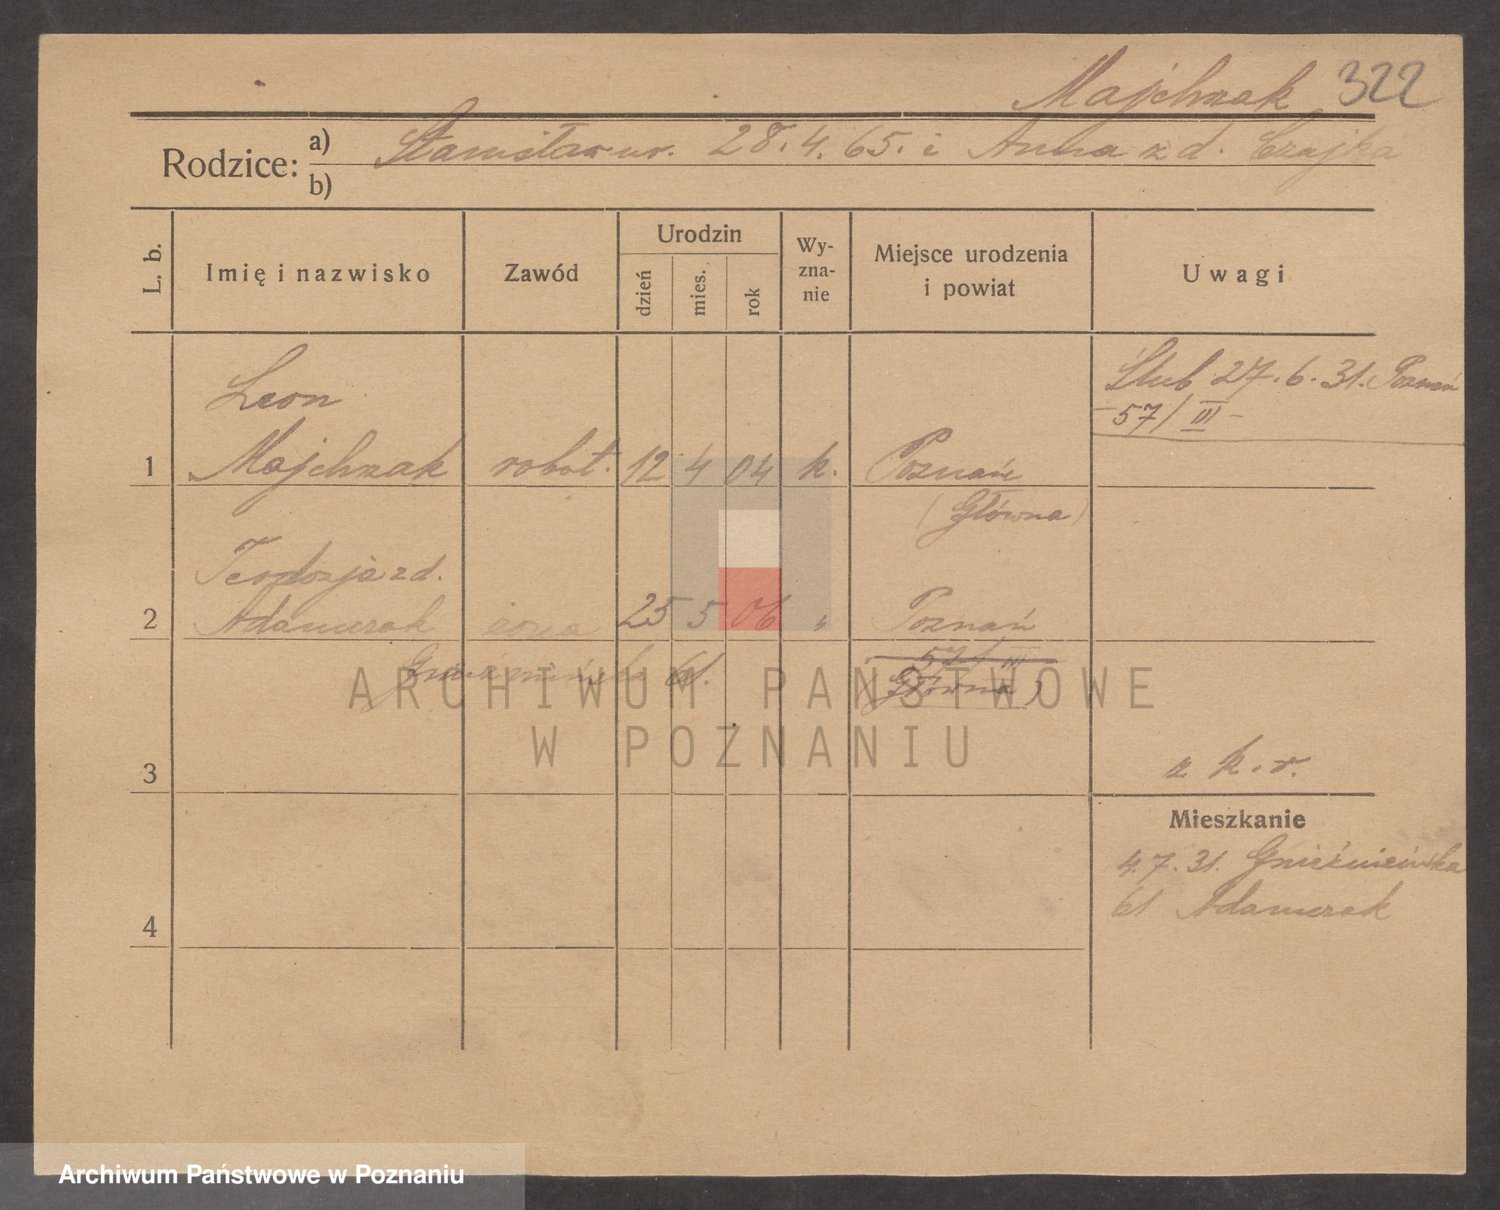 Majchrzak 322
Rodzice: a) Stanisław ur. 28.4.65. i Anna z d. Czajka
b)
L. b. Imię i nazwisko Zawód Urodzin dzień mies. rok Wyznanie Miejsce urodzenia i powiat Uwagi
Ślub 27.6.31. Poznań
-57/III-
Leon
1 Majchrzak robot. 12 4 04 k. Poznań
(Główna)
Teodozja z d.
2 Adamczak żona 25 5 06 " Poznań
57/III
Gnieźnieńska 61. Główna)
3 z k.r.
Mieszkanie
4.7.31. Gnieźnieńska
61 Adamczak
4
ARCHIWUM PAŃSTWOWE
W POZNANIU
Archiwum Państwowe w Poznaniu